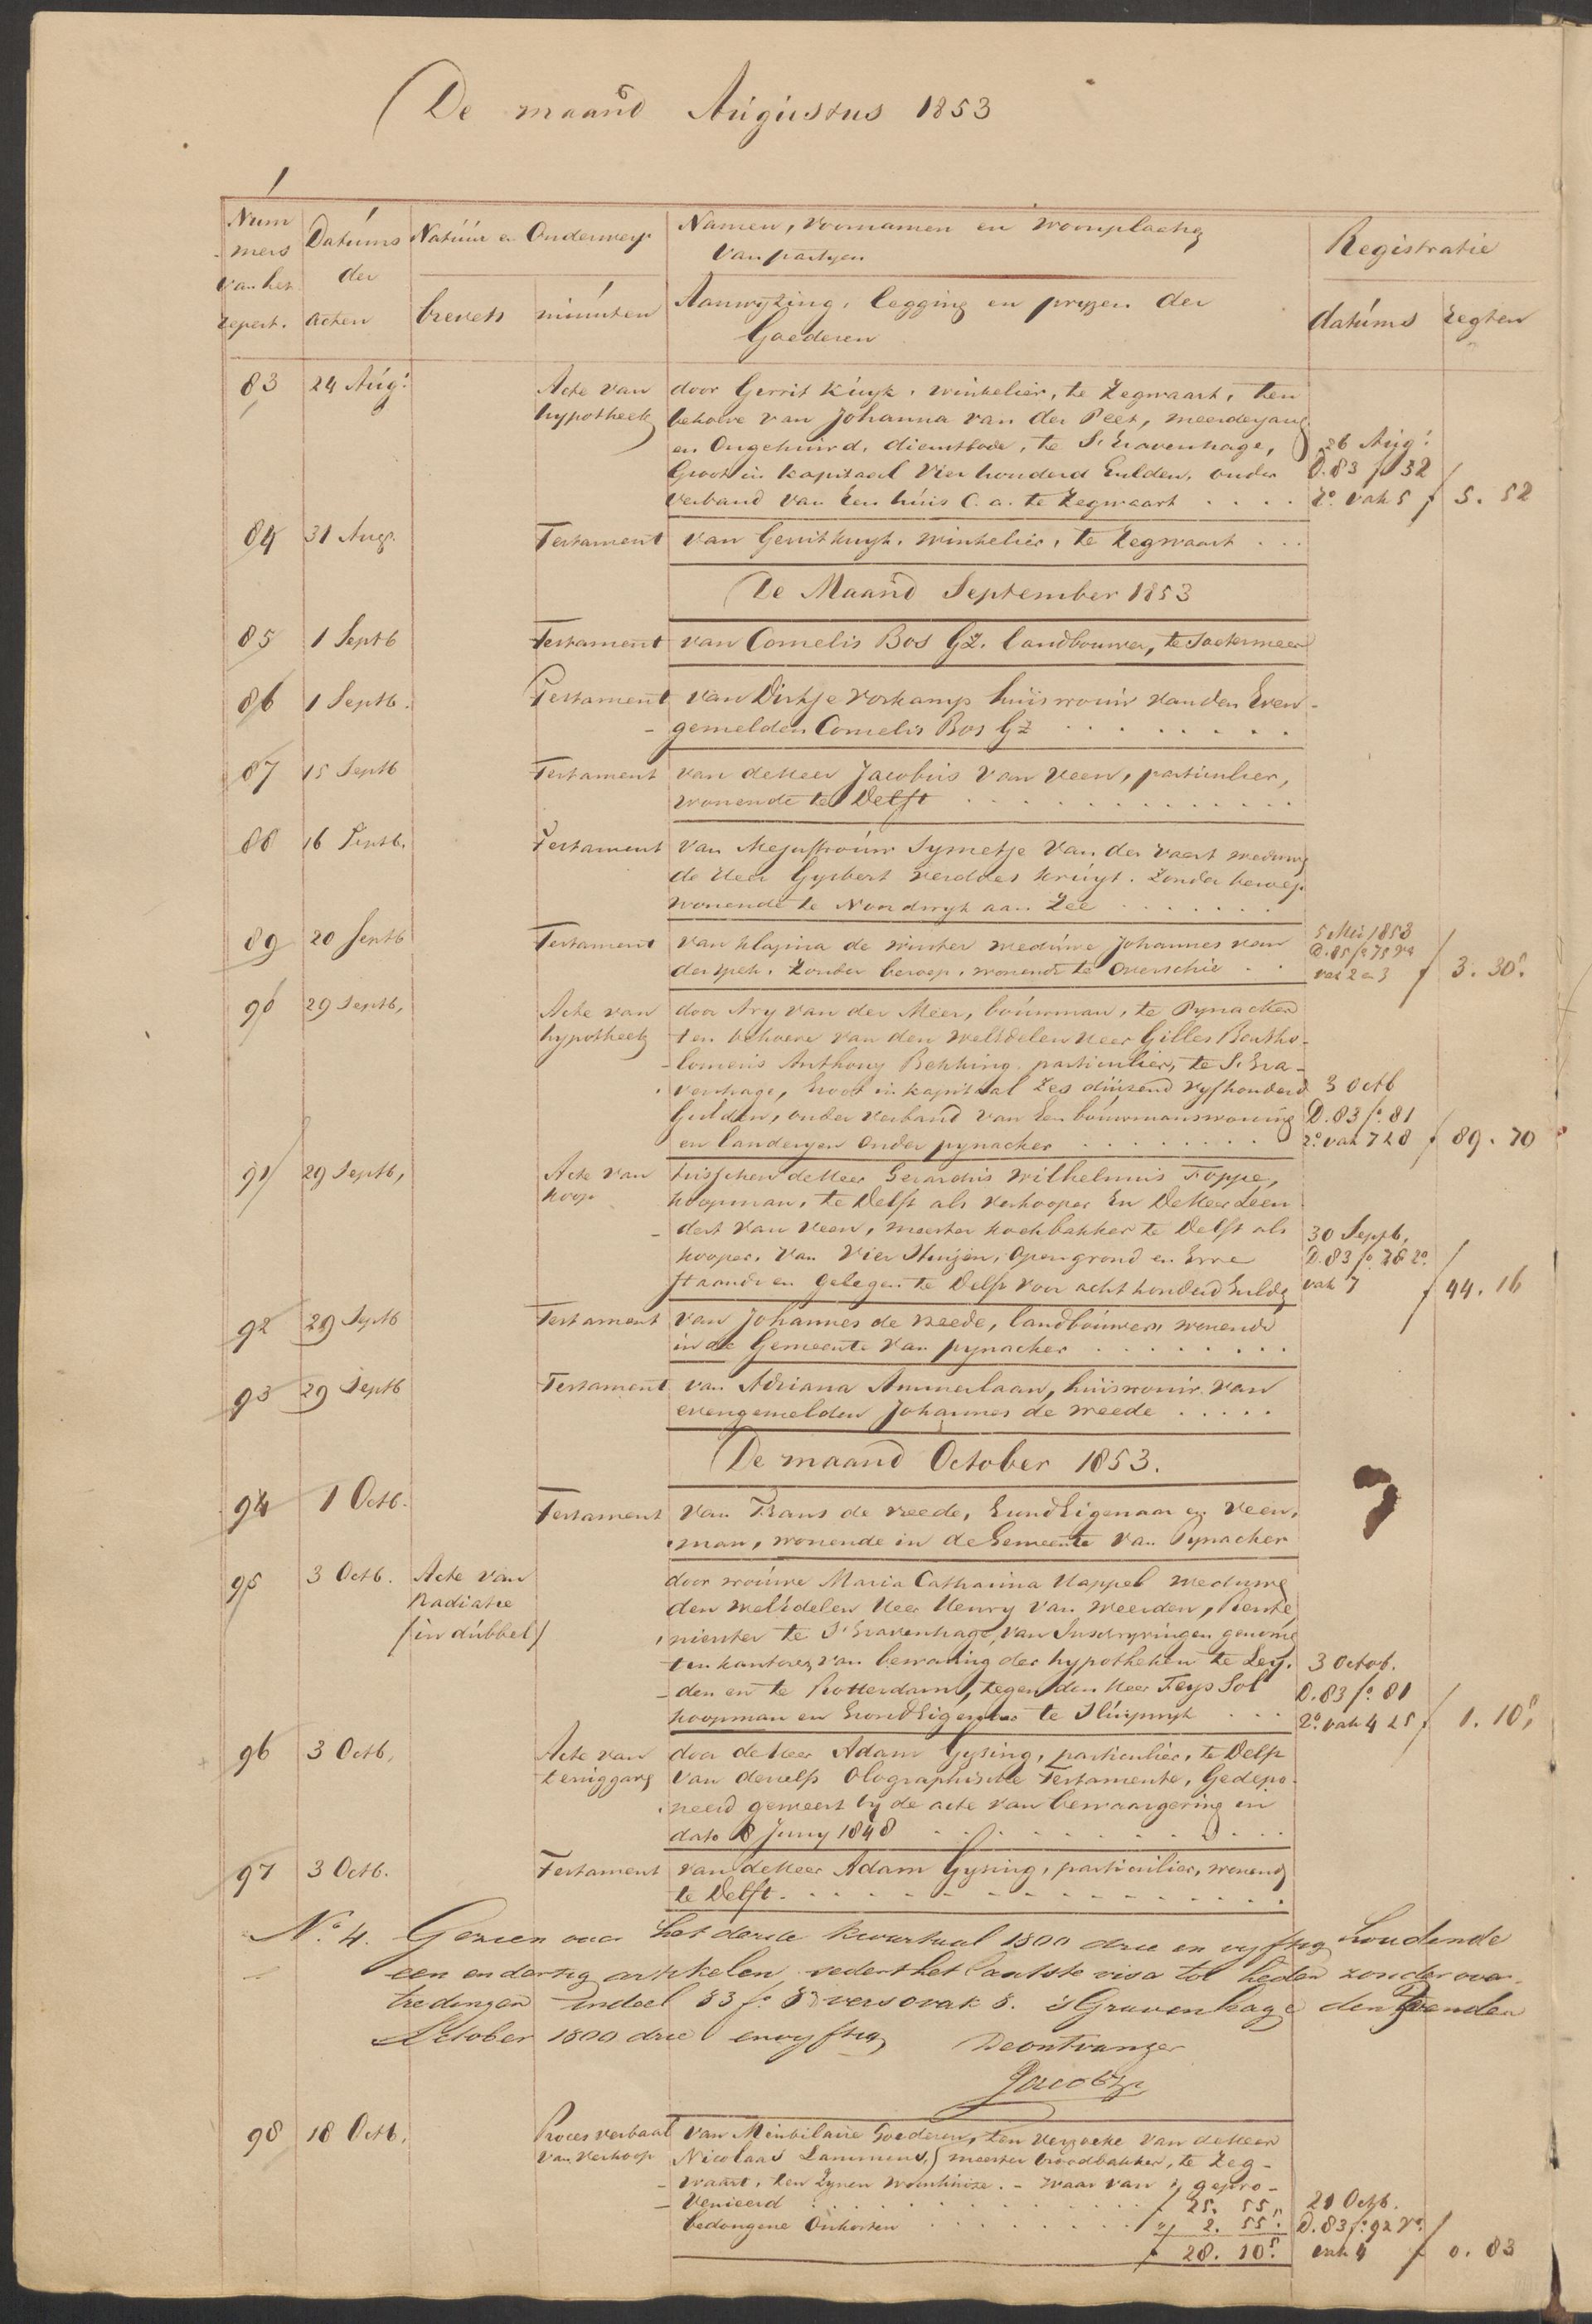 De maand Augustus 1853
Num
mers
van het
repert.
Datums
der
Acten
Natuur en Onderwerp
brevets minuten
Namen, voornamen en woonplaatsen
van partyen
Aanwyzing, legging en pryzen der
Goederen
Registratie
datums regten
83 24 Augs. Acte van door Gerrit Kuyk, winkelier, te Zegwaart, ten
hypotheek behoeve van Johanna van der Peet, meerderjarig
en Ongehuwd, dienstbode, te S'Gravenhage, 26 Augs.
Groot in kapitaal Vier honderd Gulden, onder D. 83 fo 32
verband van Een huis C. a. te Zegwaart . . . . Ro. vak 5 f 5. 52
84 31 Augs. Testament van Gerrit Kuyk, winkelier, te Zegwaart . . .
De Maand September 1853
85 1 Septb Testament van Cornelis Bos Gz. landbouwer, te Soetermeer
86 1 Septb. Testament van Dirkje Voskamp huisvrouw van den Even-
gemelden Cornelis Bos Gz . . . . . . . .
87 15 Septb Testament van de Heer Jacobus van Veen, particulier,
wonende te Delft . . . . . . . . . . . .
88 16 Septb. Testament van Mejuffrouw Symetje van der Vaart weduwe
de Heer Gysbert Verdoes Kruyt. Zonder beroep
wonende te Noordwyk aan Zee . . . . . . .
89 20 Septb Testament van Klazina de Winter weduwe Johannes van 5 Mei 1858
der Spek. Zonder beroep, wonende te Overschie . . D. 85 fo 75 Vo
vak 2 en 3 f 3. 305
90 29 Septb, Acte van door Ary van der Meer, bouwman, te Pynacker
hypotheek ten behoeve van den WelEdelen Heer Gilles Bartho-
lomeus Anthony Bekking, particulier, te S'Gra-
venhage, Groot in kapitaal Zes duizend vyfhonderd 3 Octb
Gulden, onder verband van Een bouwmanswoning D. 83 fo. 81
en landeryen Onder pynacker . . . . . . . . Ro. vak 7 & 8 f 89. 70
91 29 Septb, Acte van tusschen de Heer Gerardus Wilhelmus Foppe,
koop koopman, te Delft als verkooper En De Heer Leen-
dert van Veen, meester koekbakker te Delft als 30 Septb,
kooper, van Vier Huizen, Open grond en Erve D. 83 fo 78 Ro.
staande en Gelegen te Delft voor acht honderd Guldn vak 7 f 44. 16
92 29 Septb Testament van Johannes de Vreede, landbouwer, wonende
in de Gemeente van pynacker . . . . . . . .
93 29 Septb Testament van Adriana Ammerlaan, huisvrouw van
evengemelden Johannes de Vreede . . . . .
De maand October 1853.
94 1 Octb. Testament van Frans de Vreede, Grond Eigenaar en Veen-
man, wonende in de Gemeente van Pynacker
95 3 Octb. Acte van door vrouwe Maria Catharina Happel weduwe
Radiatie den WelEdelen Heer Henry van Weerden, Rente-
(in dubbel) nierster te S'Gravenhage, van Inschryvingen genomen
ten kantoren van bewaring der hypotheken te Ley- 3 Octob.
den en te Rotterdam, tegen den Heer Feys Sol D. 83 fo. 81
koopman en Grond Eigenaar te Sluipwyk . . . Ro. vak 4 & 5 f 1. 105
96 3 Octb, Acte van door de Heer Adam Gysing, particulier, te Delft
teruggave van deszelfs Olographische Testamente, Gedepo-
neerd geweest by de acte van bewaargeving in
dato 8 Juny 1848 . . . . . . . . . . . .
97 3 Octb. Testament van de Heer Adam Gysing, particulier, wonend
te Delft . . . . . . . . . . . . . . . .
No. 4. Gezien over het derde kwartaal 1800 drie en vyftig houdende
een en dertig artikelen sedert het laatste visa tot heden zonder over-
tredingen In deel 83 fo 83 verso vak 8. 's Gravenhage den den
October 1800 drie en vyftig De ontvanger
Jacobz
98 18 Octb. Proces verbaal van Meubilaire Goederen, ten verzoeke van de Heer
van verkoop Nicolaas Lammens, meester broodbakker, te Zeg-
waart, ten Zynen woonhuize. - waar van is gepro-
venieerd . . . . . . . . . . . f 25. 55" 21 Octb.
bedongene Onkosten . . . . . . . . " 2. 555 D. 83 fo. 92 Vo.
f 28. 105 vak 4 f 0. 83